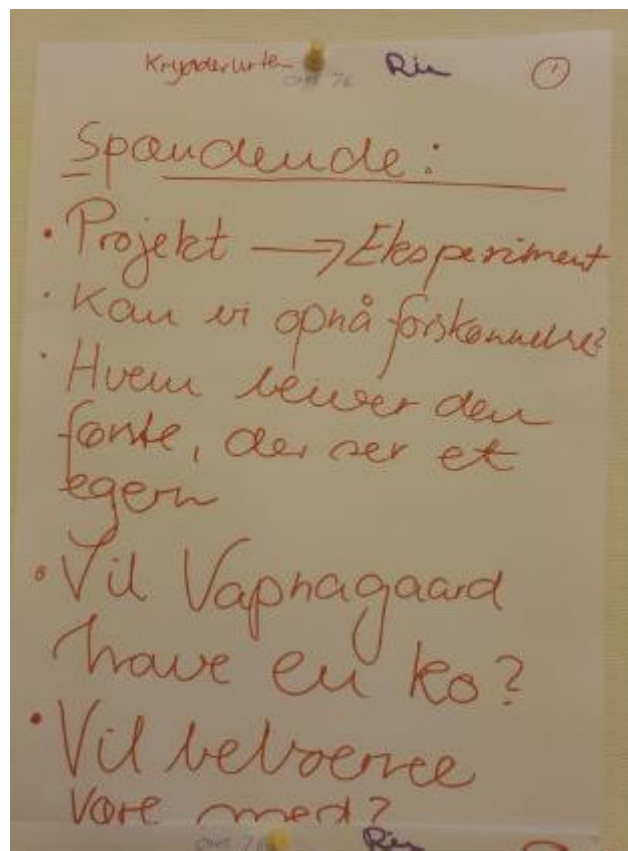 Krydderurten ①
Spændende:
• Projekt → Eksperiment
• Kan vi opnå forskønnelse?
• Hvem bliver den
første, der ser et
egern
• Vil Vapnagaard
have en ko?
• Vil beboerne
være med?